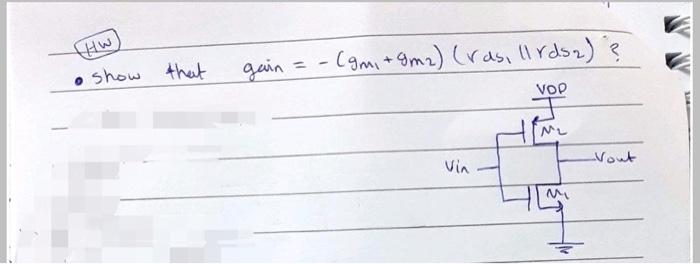 HW
• show that gain = - (gm1 + gm2) (rds1 || rds2) ?
VDD
M2
Vin
Vout
M1